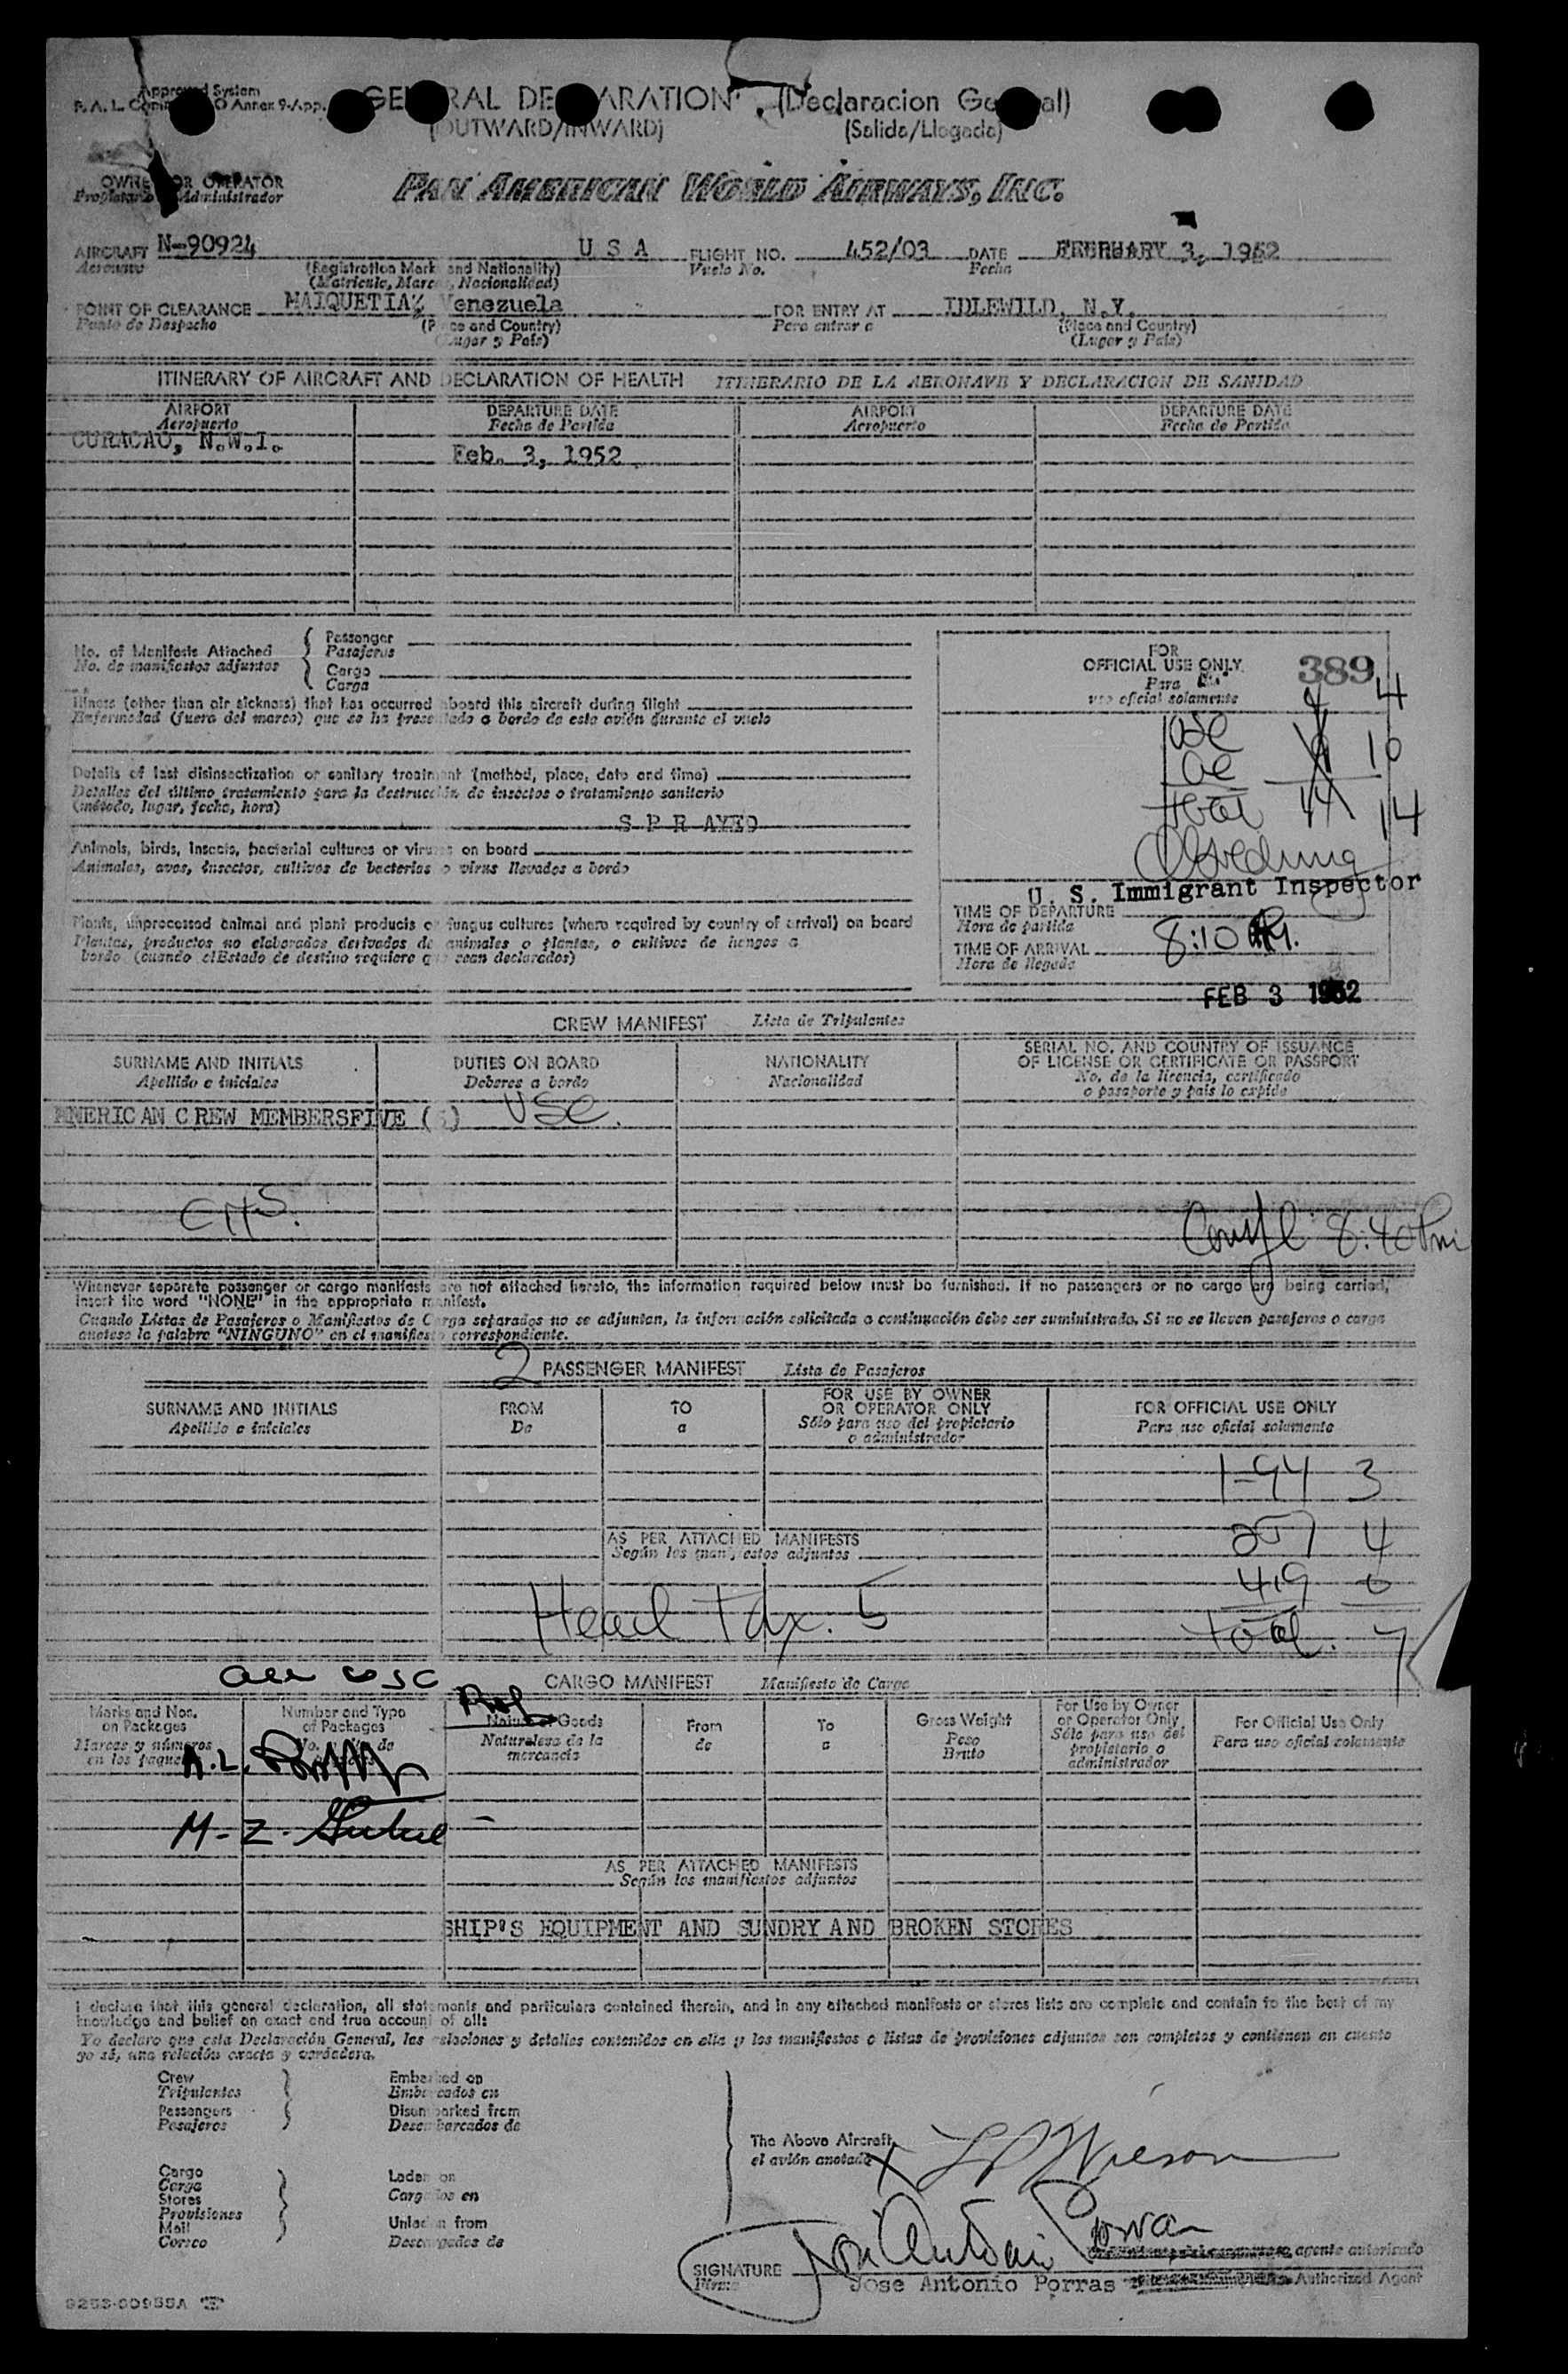 Approved System
GENERAL DECLARATION (Declaracion General)
(OUTWARD/INWARD) (Salida/Llegada)
OWNER OR OPERATOR
Propietario Administrador
PAN AMERICAN WORLD AIRWAYS, INC.
AIRCRAFT N-90924 U S A FLIGHT NO. 452/03 DATE FEBRUARY 3, 1952
Aeronave (Registration Mark and Nationality) Vuelo No. Fecha
(Matricula, Marca, Nacionalidad)
POINT OF CLEARANCE MAIQUETIA, Venezuela FOR ENTRY AT IDLEWILD, N.Y.
Punto de Despacho (Place and Country) Para entrar a (Place and Country)
(Lugar y País) (Lugar y País)
ITINERARY OF AIRCRAFT AND DECLARATION OF HEALTH ITINERARIO DE LA AERONAVE Y DECLARACION DE SANIDAD
AIRPORT DEPARTURE DATE AIRPORT DEPARTURE DATE
Aeropuerto Fecha de Partida Aeropuerto Fecha de Partida
CURACAO, N.W.I.
Feb. 3, 1952
No. of Manifests Attached
No. de manifiestos adjuntos
Passenger
Pasajeros
Cargo
Carga
Illness (other than air sickness) that has occurred aboard this aircraft during flight
Enfermedad (fuera del mareo) que se ha presentado a bordo de este avión durante el vuelo
Details of last disinsectization or sanitary treatment (method, place, date and time)
Detalles del último tratamiento para la destrucción de insectos o tratamiento sanitario
(método, lugar, fecha, hora)
S P R AYED
Animals, birds, insects, bacterial cultures or virus on board
Animales, aves, insectos, cultivos de bacterias o virus llevados a bordo
Plants, unprocessed animal and plant products or fungus cultures (where required by country of arrival) on board
Plantas, productos no elaborados derivados de animales o plantas, o cultivos de hongos a
bordo (cuando el Estado de destino requiere que sean declarados)
FOR
OFFICIAL USE ONLY 389
Para
uso oficial solamente
4
USC 10
ac
total 14 14
U. S. Immigrant Inspector
TIME OF DEPARTURE
Hora de partida
TIME OF ARRIVAL 8:10 PM.
Hora de llegada
FEB 3 1952
CREW MANIFEST Lista de Tripulantes
SURNAME AND INITIALS DUTIES ON BOARD NATIONALITY SERIAL NO. AND COUNTRY OF ISSUANCE
OF LICENSE OR CERTIFICATE OR PASSPORT
Apellido e iniciales Deberes a bordo Nacionalidad No. de la licencia, certificado
o pasaporte y país lo expide
AMERICAN CREW MEMBERSFIVE (5) USC.
8:40 Pm
Whenever separate passenger or cargo manifests are not attached hereto, the information required below must be furnished. If no passengers or no cargo are being carried,
insert the word "NONE" in the appropriate manifest.
Cuando Listas de Pasajeros o Manifiestos de Carga separados no se adjuntan, la información solicitada a continuación debe ser suministrada. Si no se lleven pasajeros o carga
anotese la palabra "NINGUNO" en el manifiesto correspondiente.
2 PASSENGER MANIFEST Lista de Pasajeros
SURNAME AND INITIALS FROM TO FOR USE BY OWNER
OR OPERATOR ONLY FOR OFFICIAL USE ONLY
Apellido e iniciales De a Sólo para uso del propietario
o administrador Para uso oficial solamente
1-94 3
257 4
AS PER ATTACHED MANIFESTS
Según los manifiestos adjuntos
419 0
Head Tax. 5
total. 7
all USC
CARGO MANIFEST Manifiesto de Carga
Marks and Nos.
on Packages
Marcas y números
en los paquetes
Number and Type
of Packages
Nature of Goods
Naturaleza de la
mercancía
From
de
To
a
Gross Weight
Peso
Bruto
For Use by Owner
or Operator Only
Sólo para uso del
propietario o
administrador
For Official Use Only
Para uso oficial solamente
A.L.
M. Z.
AS PER ATTACHED MANIFESTS
Según los manifiestos adjuntos
SHIP'S EQUIPMENT AND SUNDRY AND BROKEN STORES
I declare that this general declaration, all statements and particulars contained therein, and in any attached manifests or stores lists are complete and contain to the best of my
knowledge and belief an exact and true account of all:
Yo declaro que esta Declaración General, las relaciones y detalles contenidos en ella y los manifiestos o listas de provisiones adjuntos son completos y contienen en cuanto
yo sé, una relación exacta y verdadera.
Crew
Tripulantes
Passengers
Pasajeros
Embarked on
Embarcados en
Disembarked from
Desembarcados de
Cargo
Carga
Stores
Provisiones
Mail
Correo
Laden on
Cargados en
Unladen from
Descargados de
The Above Aircraft
el avión anotado
X L P Wilson
Jose Antonio Porras
agente autorizado
SIGNATURE
Firma
Jose Antonio Porras Authorized Agent
9253-60955A